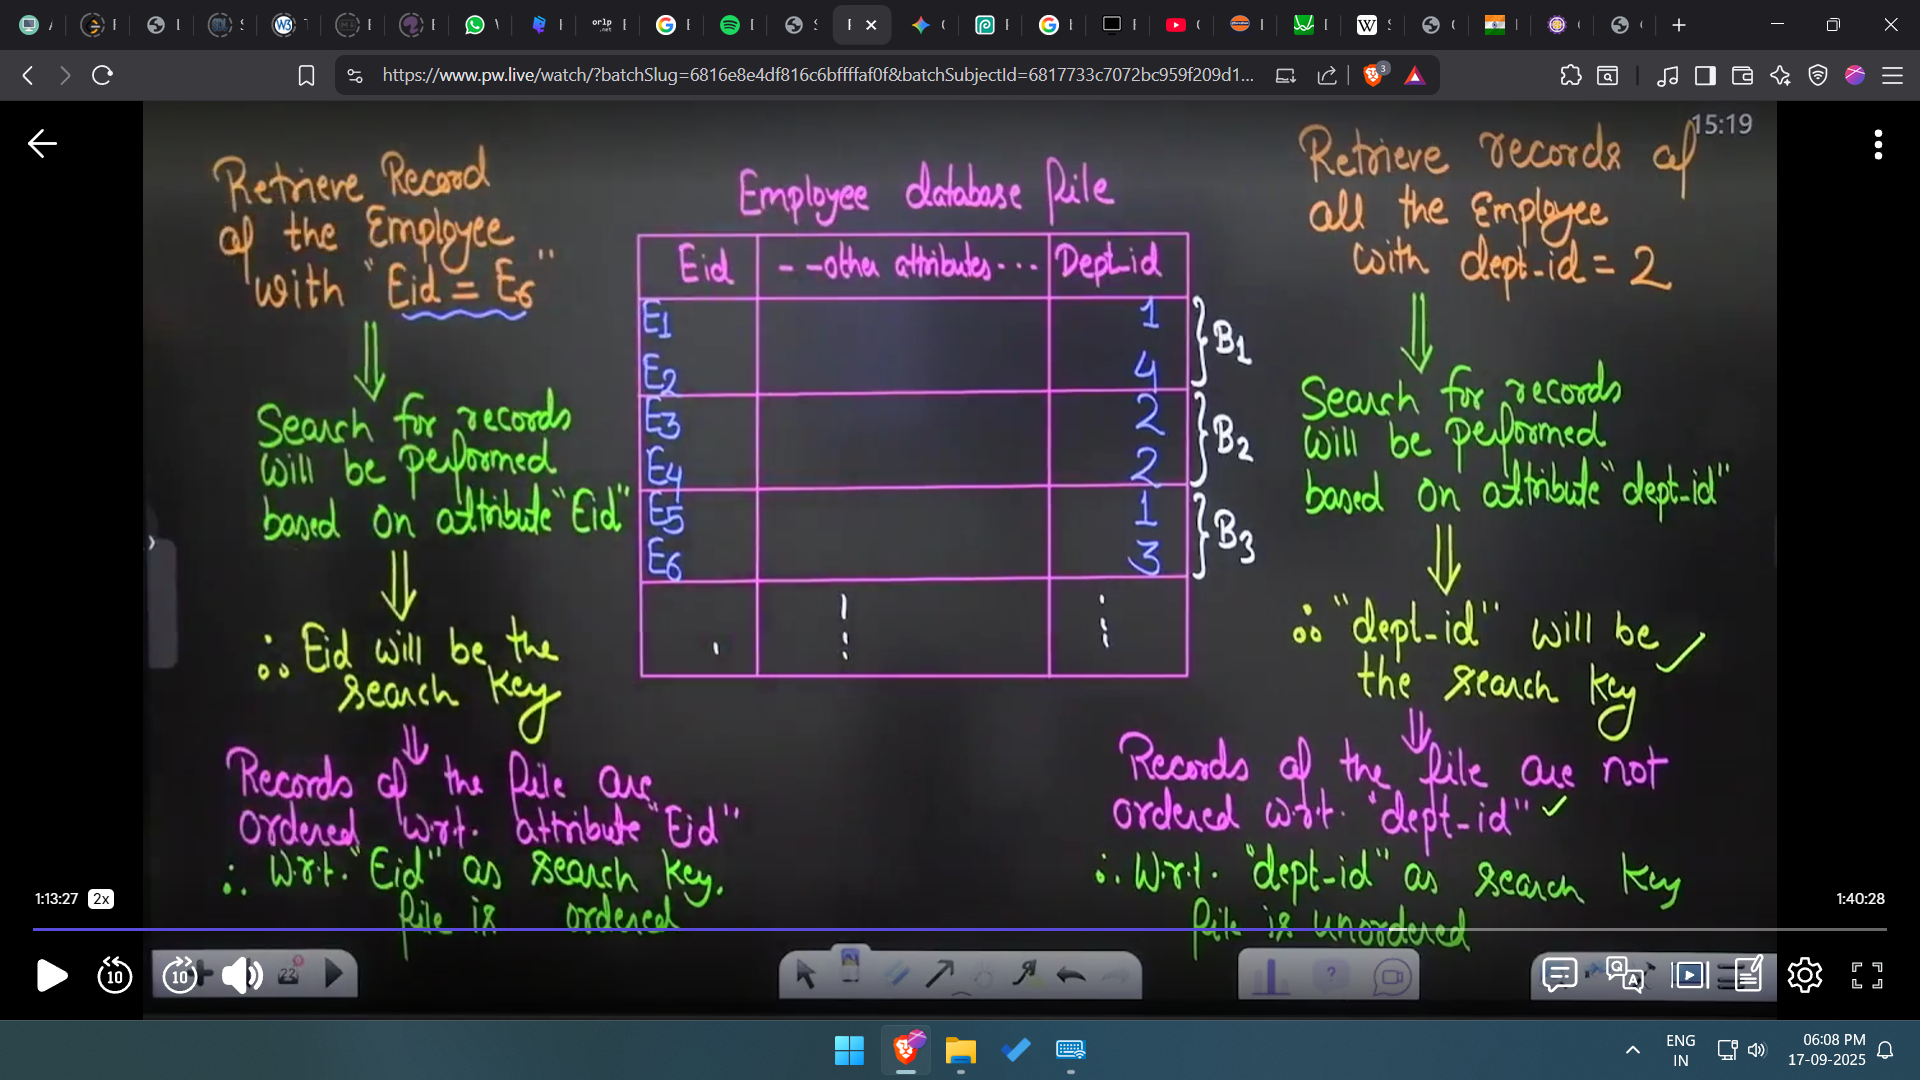 https://www.pw.live/watch/?batchSlug=6816e8e4df816c6bffffaf0f&batchSubjectId=6817733c7072bc959f209d1...
3
15:19
Retrieve Record
of the Employee
with "Eid = E6"
Search for records
will be performed
based on attribute "Eid"
∴ Eid will be the
search key
Records of the file are
ordered w.r.t. attribute "Eid"
∴ W.r.t. "Eid" as search key.
file is ordered
Employee database file
Eid --other attributes... Dept_id
E1 1
E2 4
B1
E3 2
E4 2
B2
E5 1
E6 3
B3
Retrieve records of
all the Employee
with dept_id = 2
Search for records
will be performed
based on attribute "dept_id"
∴ "dept_id" will be
the search key
Records of the file are not
ordered w.r.t. "dept_id"
∴ W.r.t. "dept_id" as search key
file is unordered
1:13:27 2x
1:40:28
10
10
22
ENG
IN
06:08 PM
17-09-2025